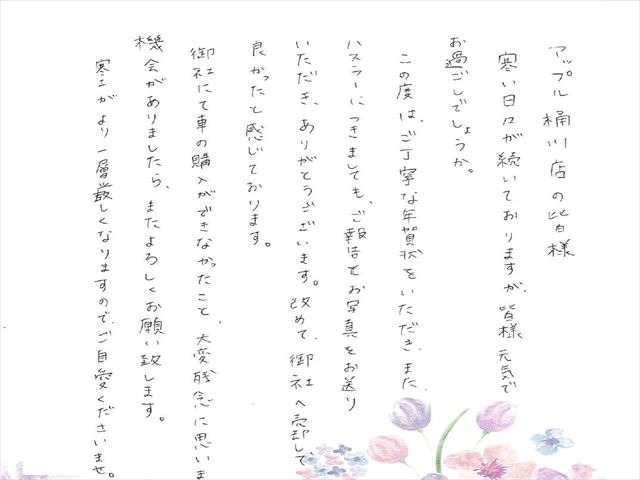 アップル桶川店の皆様
寒い日々が続いておりますが、皆様元気で
お過ごしでしょうか。
この度は、ご丁寧な年賀状をいただき、また、
ハスラーにつきましても、ご報告やお写真をお送り
いただき、ありがとうございます。改めて、御社へ売却して、
良かったと感じております。
御社にて車の購入ができなかったこと、大変残念に思いま
機会がありましたら、またよろしくお願い致します。
寒さがより一層厳しくなりますので、ご自愛くださいませ。